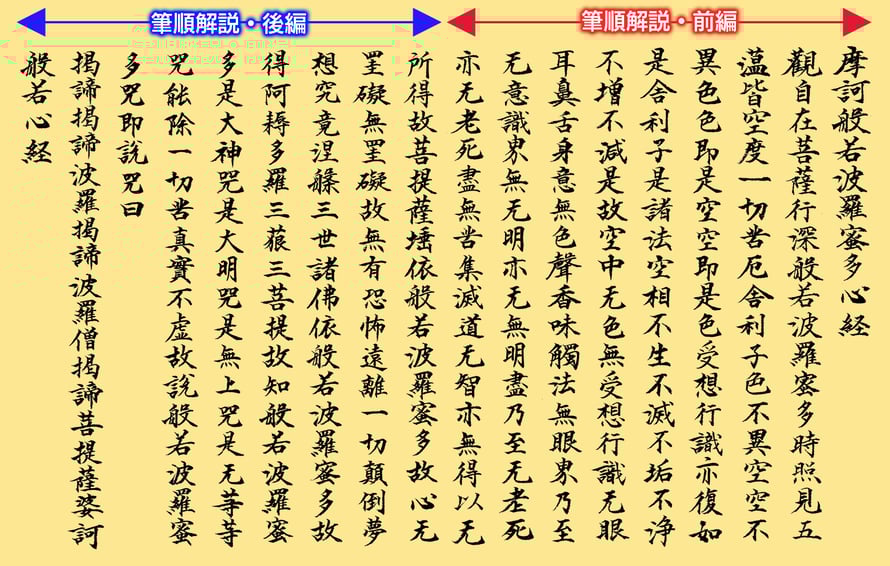 筆順解説・前編
筆順解説・後編
摩訶般若波羅蜜多心経
觀自在菩薩行深般若波羅蜜多時照見五
薀皆空度一切苦厄舎利子色不異空空不
異色色即是空空即是色受想行識亦復如
是舎利子是諸法空相不生不滅不垢不浄
不増不減是故空中无色無受想行識无眼
耳鼻舌身意無色聲香味觸法無眼界乃至
无意識界無无明亦无無明盡乃至无老死
亦无老死盡無苦集滅道无智亦無得以无
所得故菩提薩埵依般若波羅蜜多故心无
罣礙無罣礙故無有恐怖遠離一切顛倒夢
想究竟涅槃三世諸佛依般若波羅蜜多故
得阿耨多羅三藐三菩提故知般若波羅蜜
多是大神咒是大明咒是無上咒是无等等
咒能除一切苦真實不虚故説般若波羅蜜
多咒即説咒曰
揭諦揭諦波羅揭諦波羅僧揭諦菩提薩婆訶
般若心経